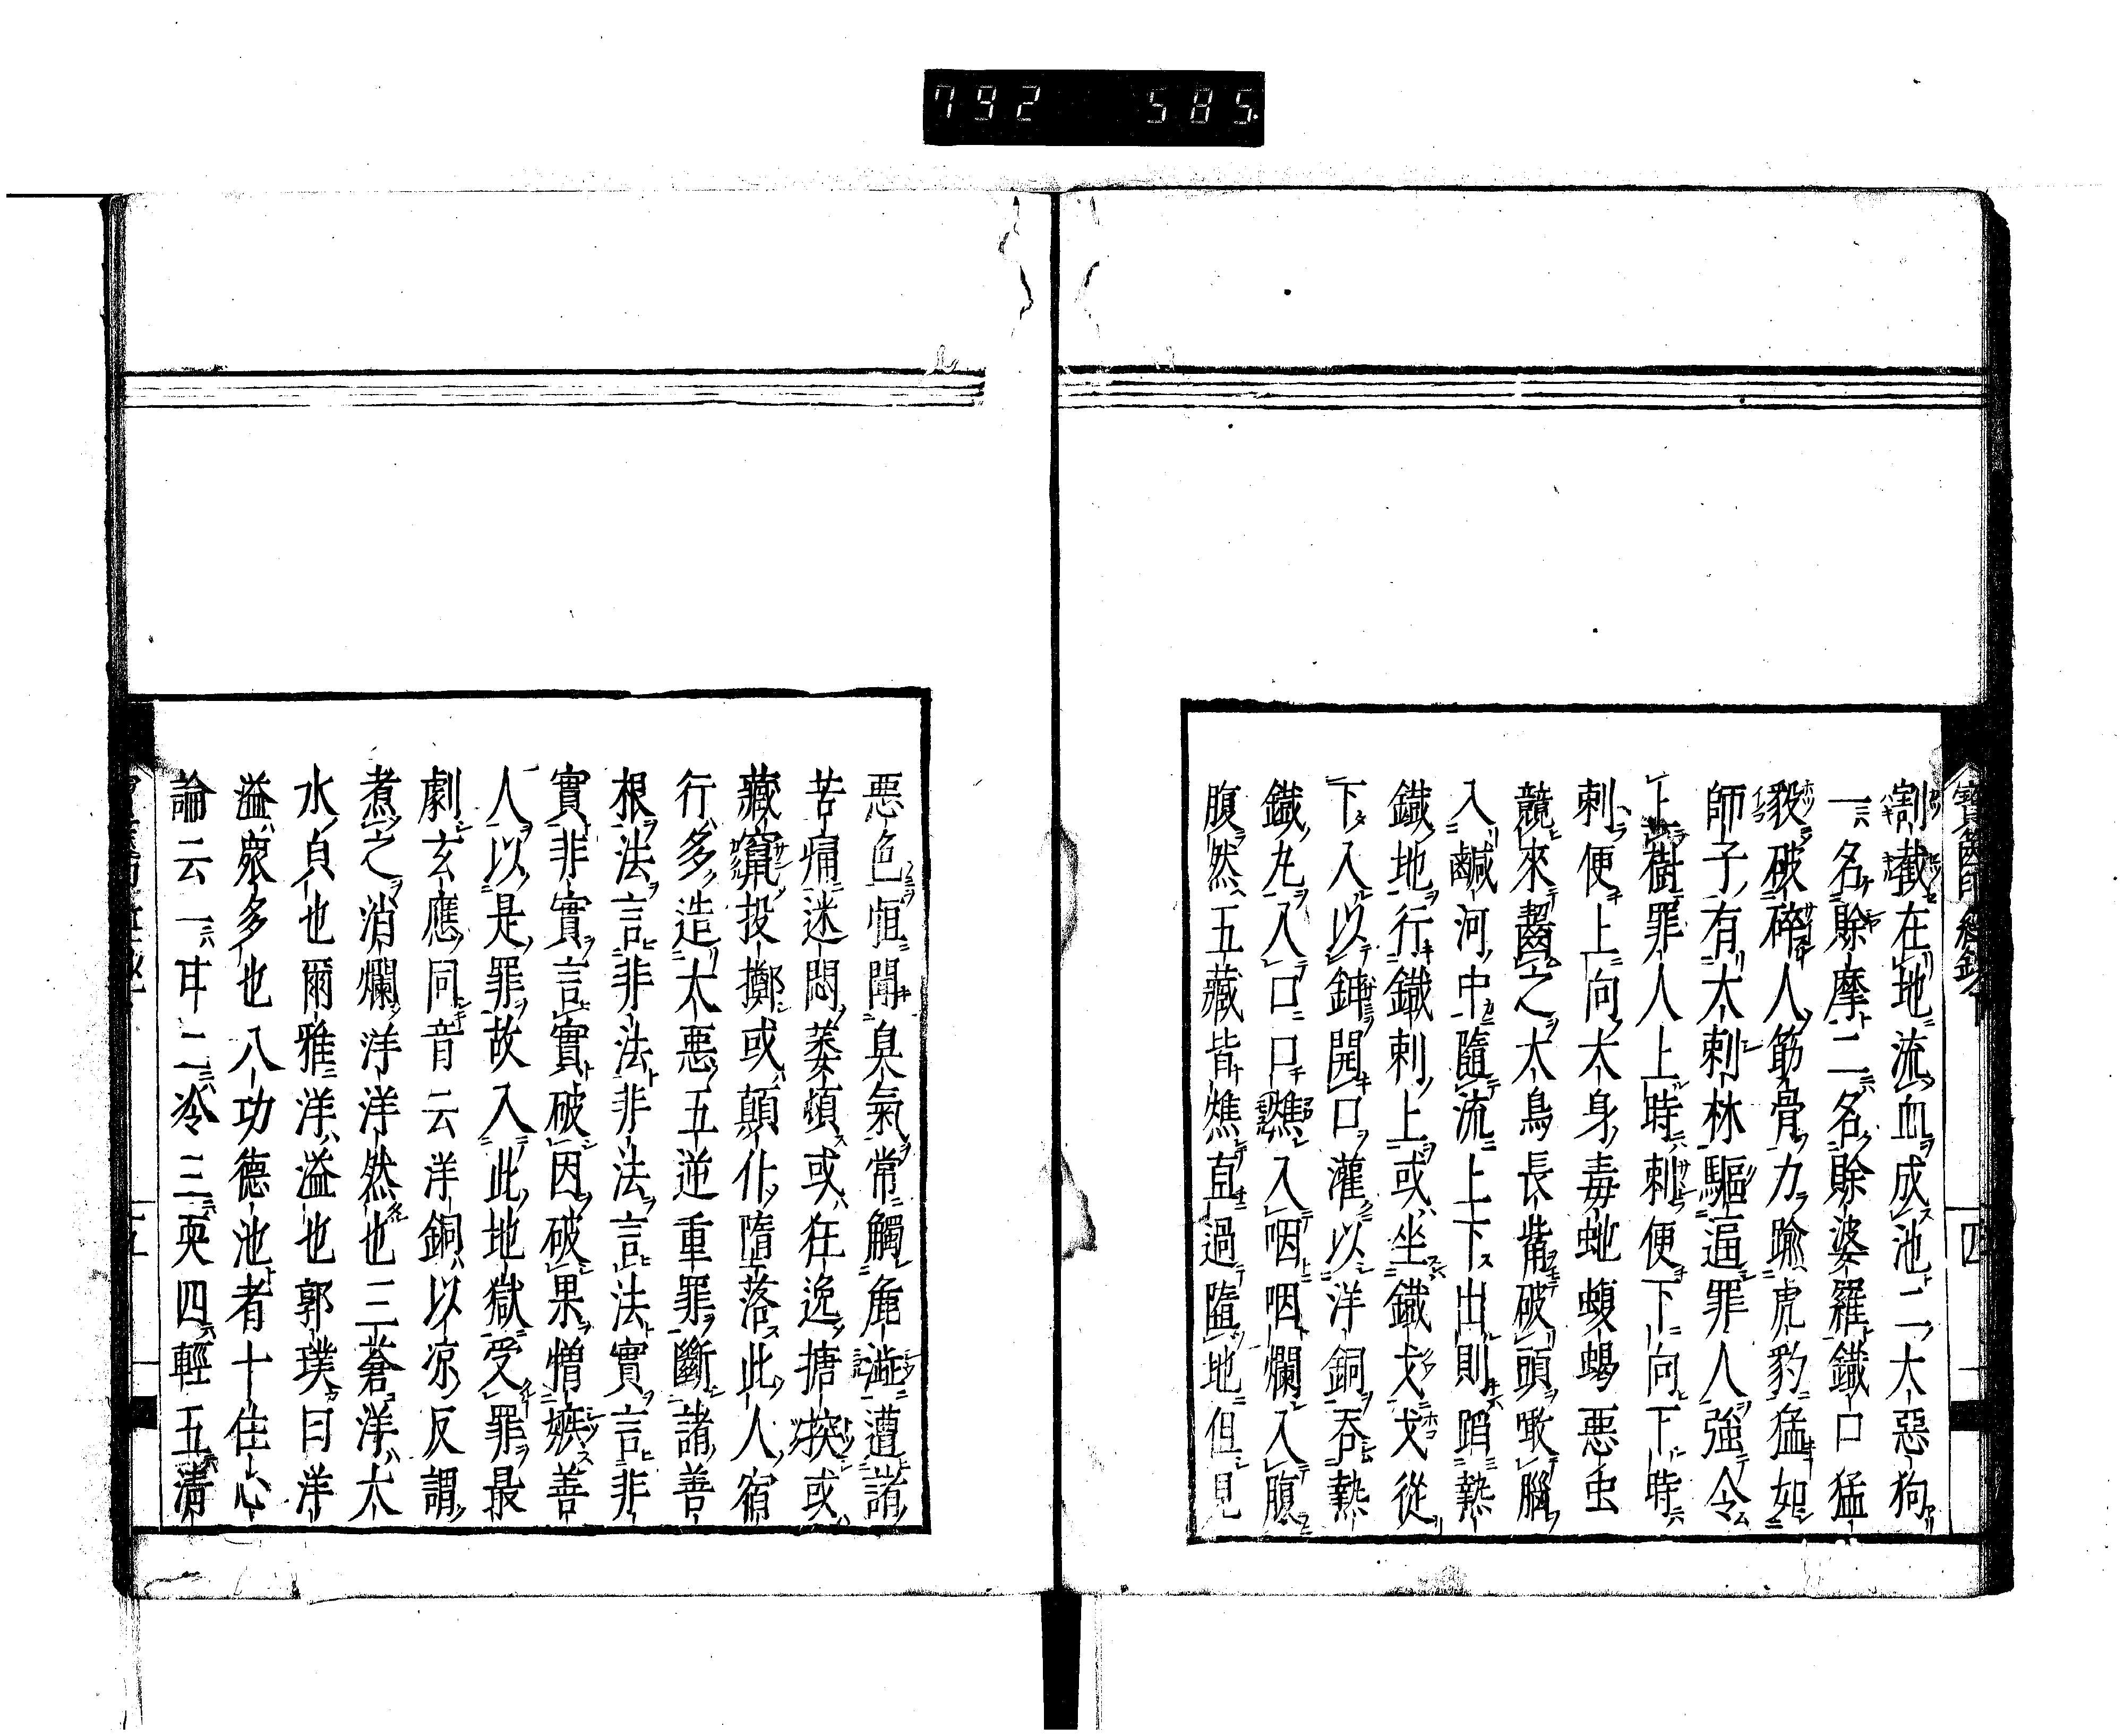 792 585
割截在地流血成池二大惡狗
一名賒摩二名賒婆羅鐵口猛
毅破碎人筋骨力踰虎豹猛如
師子有大刺林驅逼罪人強令
上樹罪人上時刺便下向下時
刺便上向大身毒蚍蝮蝎悪虫
競來齧之大鳥長觜破頭噉腦
入鹹河中隨流上下出則蹈熱
鐵地行鐵刺上或坐鐵杙杙從
下入以鉗開口灌以洋銅吞熱
鐵丸入口口燋入咽咽爛入腹
腹然五藏皆燋直過墮地但見
悪色恒聞臭氣常觸麁澁遭諸
苦痛迷悶萎頓或狂逸搪揬或
藏竄投擲或顛仆墮落此人宿
行多造大悪五逆重罪斷諸善
根法言非法非法言法實言非
實非實言實破因破果憎嫉善
人以是罪故入此地獄受罪最
劇玄應同音云洋銅以凉反謂
煮之消爛洋洋然也三蒼洋大
水貞也爾雅洋溢也郭璞曰洋
溢衆多也八功德池者十住心
論云一甘二冷三耎四輕五清